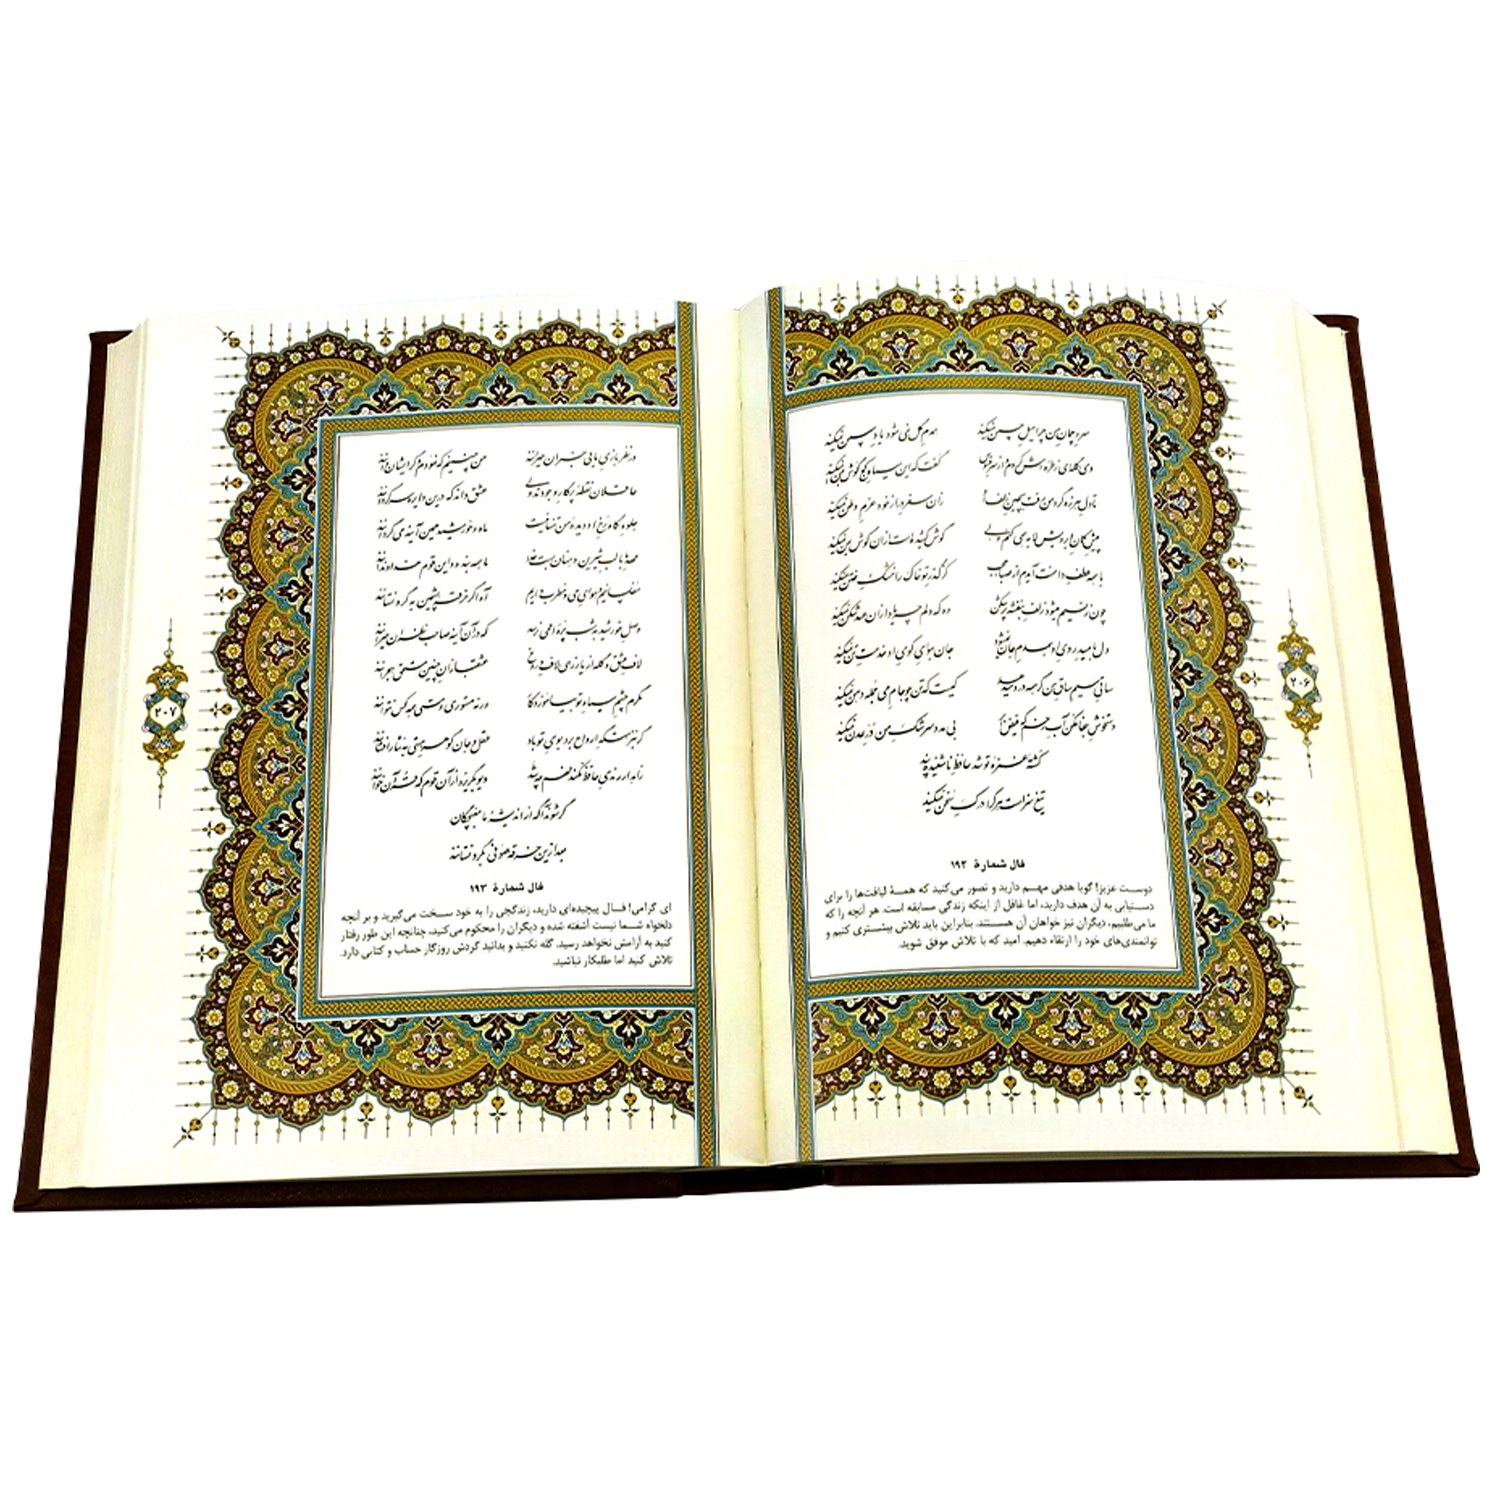 سرو چمان من چرا میل چمن نمیکند همدم گل نمی شود یاد سمن نمیکند
دی گله‌ای ز طره‌اش کردم از سر فسوس گفت که این سیاه کج گوش به من نمیکند
تا دل هرزه گرد من رفت به چین زلف او زان سفر دراز خود عزم وطن نمیکند
پیش کمان ابرویش لابه همی کنم ولی گوش کشیده است از آن گوش به من نمیکند
با همه عطف دامنت آیدم از صبا عجب کز گذر تو خاک را مشک ختن نمیکند
چون ز نسیم میشود زلف بنفشه پرشکن وه که دلم چه یاد از آن عهد شکن نمیکند
دل به امید روی او همدم جان نمیشود جان به هوای کوی او خدمت تن نمیکند
ساقی سیم ساق من گر همه درد میدهد کیست که تن چو جام می جمله دهن نمیکند
دستخوش جفا مکن آب رخم که فیض ابر بی مدد سرشک من در عدن نمیکند
کشتهٔ غمزهٔ تو شد حافظ ناشنیده پند
تیغ سزاست هر که را درک سخن نمیکند
فال شمارهٔ ۱۹۲
دوست عزیز! گویا هدفی مهم دارید و تصور می‌کنید که همهٔ لیاقت‌ها را برای
دستیابی به آن هدف دارید، اما غافل از اینکه زندگی مسابقه است. هر آنچه را که
ما می‌طلبیم، دیگران نیز خواهان آن هستند. بنابراین باید تلاش بیشتری کنیم و
توانمندی‌های خود را ارتقاء دهیم. امید که با تلاش موفق شوید.
۲۰۶
در نظربازی ما بی خبران حیرانند من چنینم که نمودم دگر ایشان دانند
عاقلان نقطهٔ پرگار وجودند ولی عشق داند که درین دایره سرگردانند
جلوه گاه رخ او دیدهٔ من تنها نیست ماه و خورشید همین آینه می گردانند
عهد ما با لب شیرین دهنان بست خدا ما همه بنده و این قوم خداوندانند
مفلسانیم و هوای می و مطرب داریم آه اگر خرقهٔ پشمین به گرو نستانند
وصل خورشید به شب پرهٔ اعمی نرسد که در آن آینه صاحب نظران حیرانند
لاف عشق و گله از یار زهی لاف دروغ عشقبازان چنین مستحق هجرانند
مگرم چشم سیاه تو بیاموزد کار ورنه مستوری و مستی همه کس نتوانند
گر به نزهتگه ارواح برد بوی تو باد عقل و جان گوهر هستی به نثار افشانند
زاهد ار رندی حافظ نکند فهم چه شد دیو بگریزد از آن قوم که قرآن خوانند
گر شوند آگه از اندیشهٔ ما مغبچگان
بعد ازین خرقهٔ صوفی به گرو نستانند
فال شمارهٔ ۱۹۳
ای گرامی! فال پیچیده‌ای دارید، زندگی را به خود سخت می‌گیرید و بر آنچه
دلخواه شما نیست آشفته شده و دیگران را محکوم می‌کنید، چنانچه این طور رفتار
کنید به آرامش نخواهد رسید. گله نکنید و بدانید گردش روزگار حساب و کتابی دارد.
تلاش کنید اما طلبکار نباشید.
۲۰۷